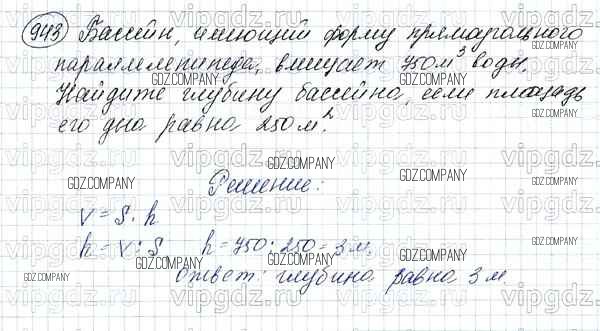 943 Бассейн, имеющий форму прямоугольного
параллелепипеда, вмещает 750 м³ воды.
Найдите глубину бассейна, если площадь
его дна равна 250 м².
Решение:
V = S · h
h = V : S h = 750 : 250 = 3 м.
Ответ: глубина равна 3 м.
GDZ.COMPANY
vipgdz.com